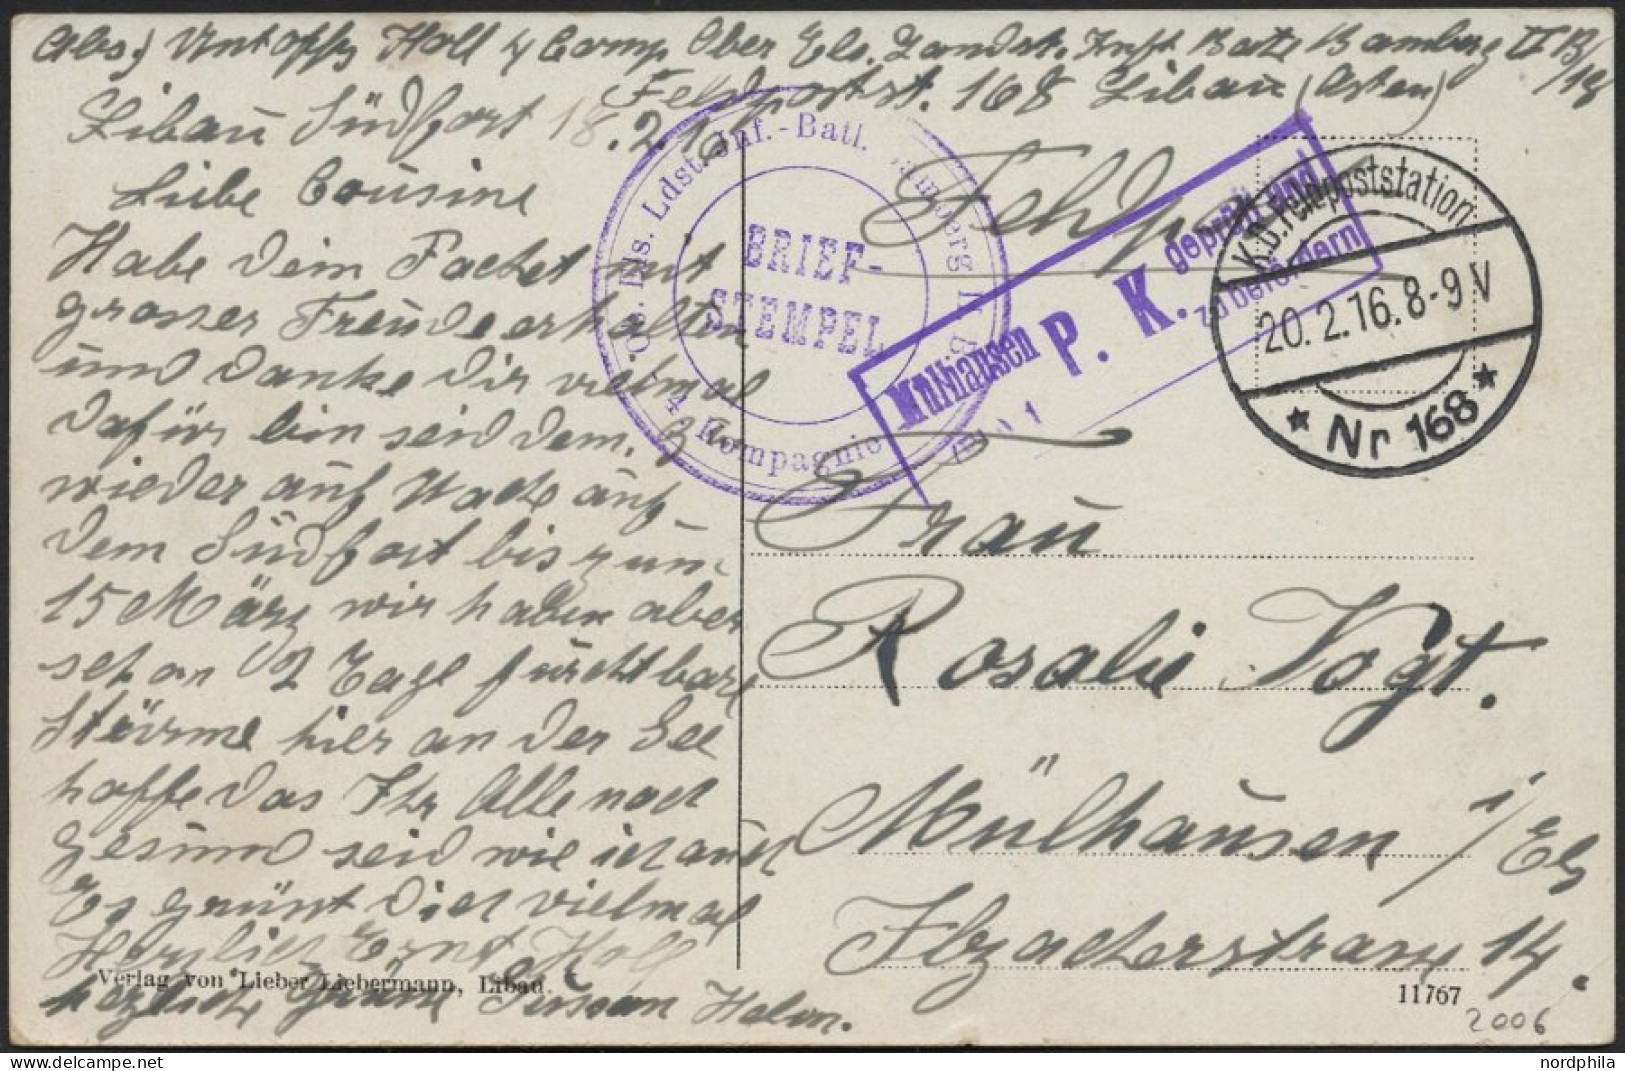 Abs) Untoffz Holl 4 Comp Ober Els. Landst. Inft Batl Bamberg II B/18
Feldpostst. 168 Libau (Osten)
Libau Südfort 18.2.16
Liebe Cousine
Habe Dein Packet mit
grosser Freude erhalten
und danke Dir vielmal
dafür bin seid dem
wieder auf Wache auf
dem Südfort bis zum
15 März wir haben aber
schon 2 Tage furchtbare
Stürme hier an der See
hoffe das Ihr Alle noch
gesund seid wie ich auch
Es grünt Dich vielmal
Herzlich Ernst Holl
herzliche Grüsse
Verlag von Lieber Liebermann, Libau.
Ob. Els. Ldst. Inf.-Batl. Bamberg II B
4 Kompagnie
BRIEF-
STEMPEL
Feldp
Mülhausen P. K. geprüft und
zu befördern
K.D. Feldpoststation
20.2.16.8-9V
* Nr 168 *
Frau
Rosalie Vogt.
Mülhausen i/Els
Illzacherstrasse 14.
11767
2006
nordphila